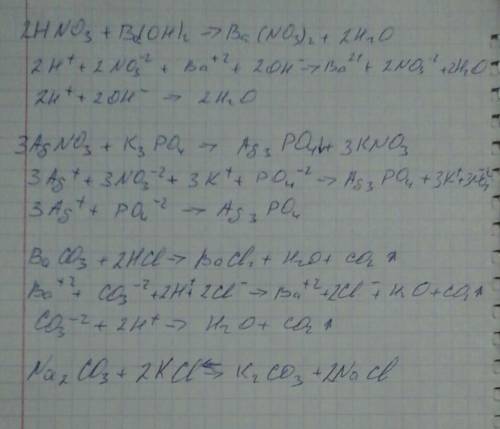 2HNO₃ + Ba(OH)₂ → Ba(NO₃)₂ + 2H₂O
2H⁺ + 2NO₃⁻² + Ba⁺² + 2OH⁻ → Ba²⁺ + 2NO₃⁻² + 2H₂O
2H⁺ + 2OH⁻ → 2H₂O
3AgNO₃ + K₃PO₄ → Ag₃PO₄↓ + 3KNO₃
3Ag⁺ + 3NO₃⁻² + 3K⁺ + PO₄⁻² → Ag₃PO₄ + 3K⁺ + 3NO₃⁻²
3Ag⁺ + PO₄⁻² → Ag₃PO₄
BaCO₃ + 2HCl → BaCl₂ + H₂O + CO₂↑
Ba⁺² + CO₃⁻² + 2H⁺ + 2Cl⁻ → Ba⁺² + 2Cl⁻ + H₂O + CO₂↑
CO₃⁻² + 2H⁺ → H₂O + CO₂↑
Na₂CO₃ + 2KCl ⇆ K₂CO₃ + 2NaCl